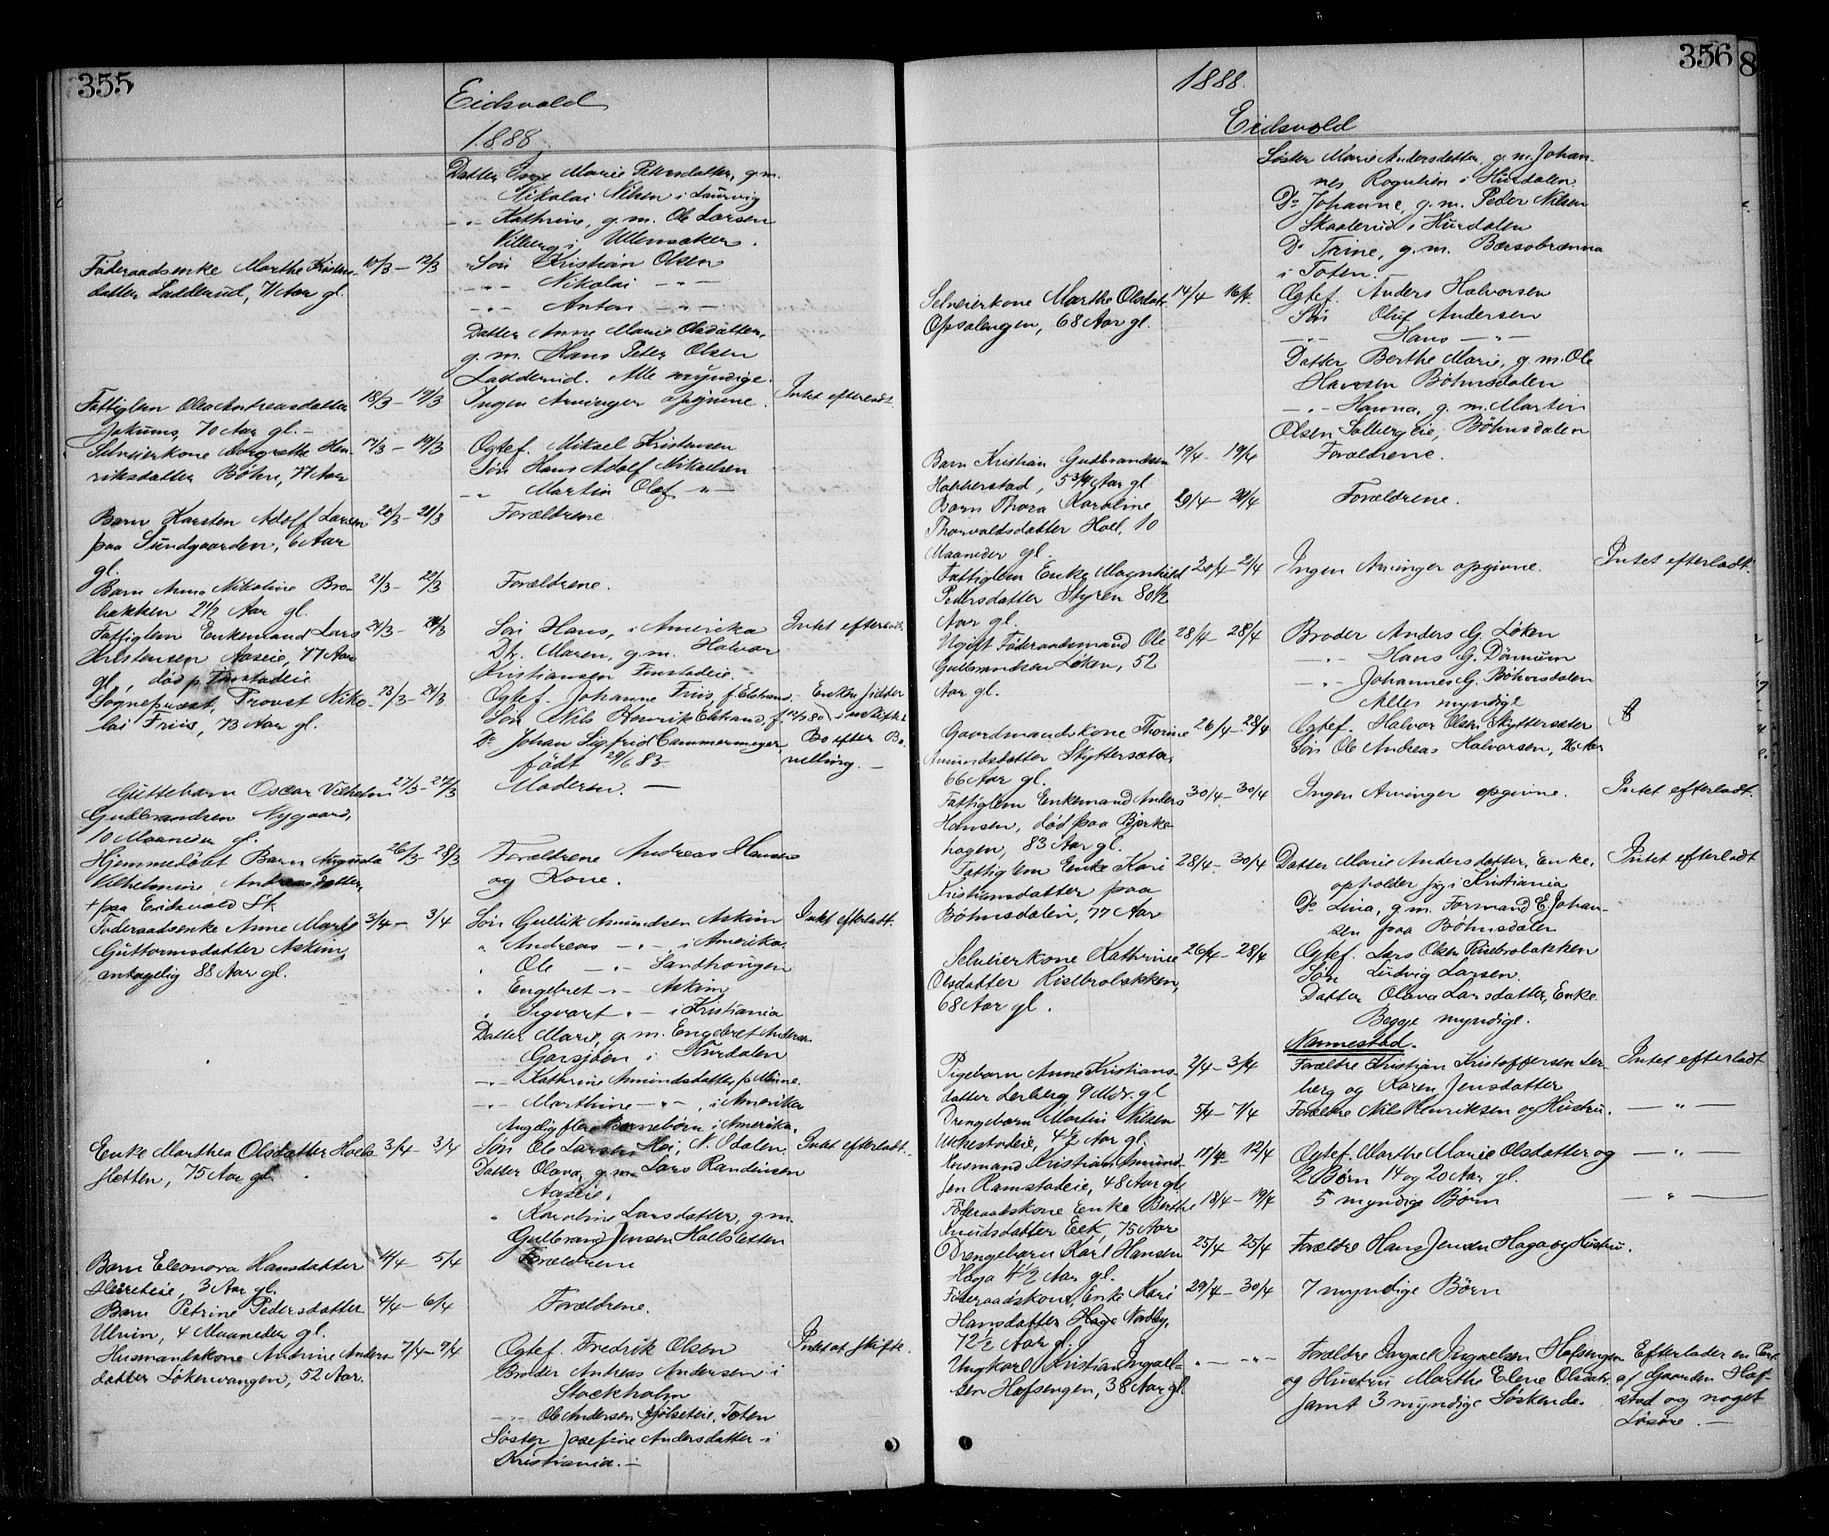 355
Eidsvold
1888.
Datter Inge Marie Petersdatter, g.m.
Nikolai Nilsen i Laurvig
-„- Kathrine, g.m. Ole Larsen
Vilberg i Ullensaker.
Føderaadsenke Marthe Kristens- 10/3 – 12/3 Søn Kristian Olsen
datter Ladderud, 71 Aar gl. -„- Nikolai -„-
-„- Anton -„-
Datter Anne Marie Olsdatter,
g.m. Hans Peter Olsen
Ladderud. Alle myndige.
Fattiglem Olea Andreasdatter 18/3 – 19/3 Ingen Arvinger opgivne. Intet efterladt.
70 Aar gl. –
Selveierkone Hen- 17/3 – 19/3 Egtef. Mikael Kristensen
riksdatter Bøhn, 77 Aar Søn Hans Adolf Mikaelsen
-„- Martin Olaf -„-
Barn Karsten Adolf Larsen 20/3 – 21/3 Forældrene.
paa Sundgaarden, 6 Aar
gl.
Barn Anna Nikoline Bro- 21/3 – 22/3 Forældrene.
bakken 2 1/2 Aar gl.
Fattiglem Enkemand Lars 21/3 – 24/3 Søn Hans, i Amerika Intet efterladt.
Kristensen Aaseie, 77 Aar Dtr. Maren, g.m. Halvor
gl., død p. Finstadeie Kristiansen Finstadeie. –
Sognepræst, Provst Niko- 23/3 – 24/3 Egtef. Johanne Friis f. – Enken sidder
lai Friis, 73 Aar gl. Søn Nils Henrik f. 12/4 80 i uskiftet
Do Johan Sigfrid Cammermeyer Bo efter Be-
født 29/6 83 villing. –
Guttebarn Oscar Vilhelm 27/3 – 27/3 Moderen. –
Gulbrandsen Nygaard,
10 Maaneder gl.
Hjemmedøbt Barn Augusta 26/3 – 28/3 Forældrene Andreas Hansen
Vilhelmine Andreasdatter og Kone.
+ paa Eidsvold St.
Føderaadsenke Anne Marie 3/4 – 3/4 Søn Gullik Amundsen Askim Intet efterladt.
Guttormsdatter Askim, „ Andreas -„- i Amerika
antagelig 88 Aar gl. „ Ole -„- Sandhougen
„ Engebret -„- Askim
„ Sigvart -„- i Kristiania
Datter Marie, g.m. Engebret Anderse
Garsjøen i Hurdalen
-„- Kathrine Amundsdatter p. Minne.
-„- Marthine -„-, i Amerika
Angdig flere Barnebørn i Amerika.
Enke Marthea Olsdatter Hols- 3/4 – 3/4 Søn Ole Larsen Høi, N. Odalen, Intet efterladt.
sletten, 75 Aar gl. Datter Olava, g.m. Lars Randinsen
Aaseie.
„ Karoline Larsdatter, g.m.
Gulbrand Jensen Holssletten
Barn Eleonora Hansdatter 4/4 – 5/4 Forældrene
3 Aar gl.
Barn Petrine Pedersdatter 4/4 – 6/4 Forældrene.
Ulvin, 4 Maaneder gl.
Husmandskone Andrine Anders- 7/4 – 9/4 Egtef. Fredrik Olsen Intet at skifte.
datter Løkenvangen, 52 Aar. Broder Andreas Andersen i
Stockholm
-„- Ole Andersen Toten
Søster Josefine Andersdatter i
Kristiania. –
356
1888.
Eidsvold
Søster Marie Andersdatter, g.m. Johan-
nes i Hurdalen
Do Johanne, g.m. Peder Nilsen
Skaalerud i Hurdalen
Do Trine, g.m.
i Toten.
Selveierkone Marthe Olsdatr. 14/4 – 16/4 Egtef. Anders Halvorsen
Opsalengen, 68 Aar gl. Søn Oluf Andersen
-„- Hans -„-
Datter Berthe Marie, g.m. Ole
Hansen Bøhnsdalen
-„- Hanna, g.m. Martin
Olsen Solbergeie, Bøhnsdalen
Barn Kristian Gudbrandsen 19/4 – 19/4 Forældrene.
Habberstad, 5 3/4 Aar gl
Barn Thora Karoline 20/4 – 20/4 Forældrene.
Thorvaldsdatter Holl, 10
Maaneder gl.
Fattiglem Enke Magnhild 20/4 – 21/4 Ingen Arvinger opgivne. Intet efterladt.
Pedersdatter Styren 80 1/2
Aar gl.
Ugift Føderaadsmand Ole 28/4 – 28/4 Broder Anders G. Løken
Gulbrandsen Løken, 52 -„- Hans G. Dønnum
Aar gl. -„- Johannes G. Bøhnsdalen
Alle myndige
Gaardmandskone Thorine 26/4 – 28/4 Egtef. Halvor Olsen Skyttersæter
Amundsdatter Skyttersæter, Søn Ole Andreas Halvorsen, 26 Aar
66 Aar gl.
Fattiglem Enkemand Anders 30/4 – 30/4 Ingen Arvinger opgivne. Intet efterladt.
Hansen, død paa Bjerke-
hagen, 83 Aar gl.
Fattiglem Enke Kari 28/4 – 30/4 Datter Marie Andersdatter, Enke, Intet efterladt
Kristiansdatter paa opholder sig i Kristiania
Bøhnsdalen, 77 Aar Do Lina, g.m. Formand E. Johan-
sen paa Bøhnsdalen
Selveierkone Kathrine 26/4 – 28/4 Egtef. Lars Olsen Risebrobakken
Olsdatter Risebrobakken, Søn Ludvig Larsen.
68 Aar gl. Datter Olava Larsdatter, Enke.
Begge myndige.
Nannestad.
Pigebarn Anne Kristians- 2/4 – 3/4 Forældre Kristian Kristoffersen Ler- Intet efterladt
datter Lerberg 9 Mdr. gl berg og Karen Jensdatter
Drengebarn Martin Nilsen 5/4 – 7/4 Forældre Nils Henriksen og Hustru. – „ –
4 1/2 Aar gl.
Husmand Kristian Amund- 11/4 – 12/4 Egtef. Marthe Marie Olsdatter og – „ –
sen Ramstadeie, 48 Aar gl. 2 Børn 14 og 20 Aar gl.
Føderaadskone Enke Berthe 18/4 – 19/4 5 myndige Børn – „ –
Knudsdatter Eek, 75 Aar
Drengebarn Karl Hansen 25/4 – 25/4 Forældre Hans Jensen Haga og Hustru.
Haga 4 1/2 Aar gl.
Føderaadskone, Enke Kari 29/4 – 30/4 7 myndige Børn
Hansdatter Haga Nordby,
72 1/2 Aar gl.
Ungkarl Kristian Ingael- „ – „ – Forældre Ingael Ingaelsen Hofsengen Efterlader en Part
sen Hofsengen, 38 Aar gl. og Hustru Marthe Elene Olsdatr. af Gaarden Hof-
samt 3 myndige Søskende. stad og noget
Løsøre. –